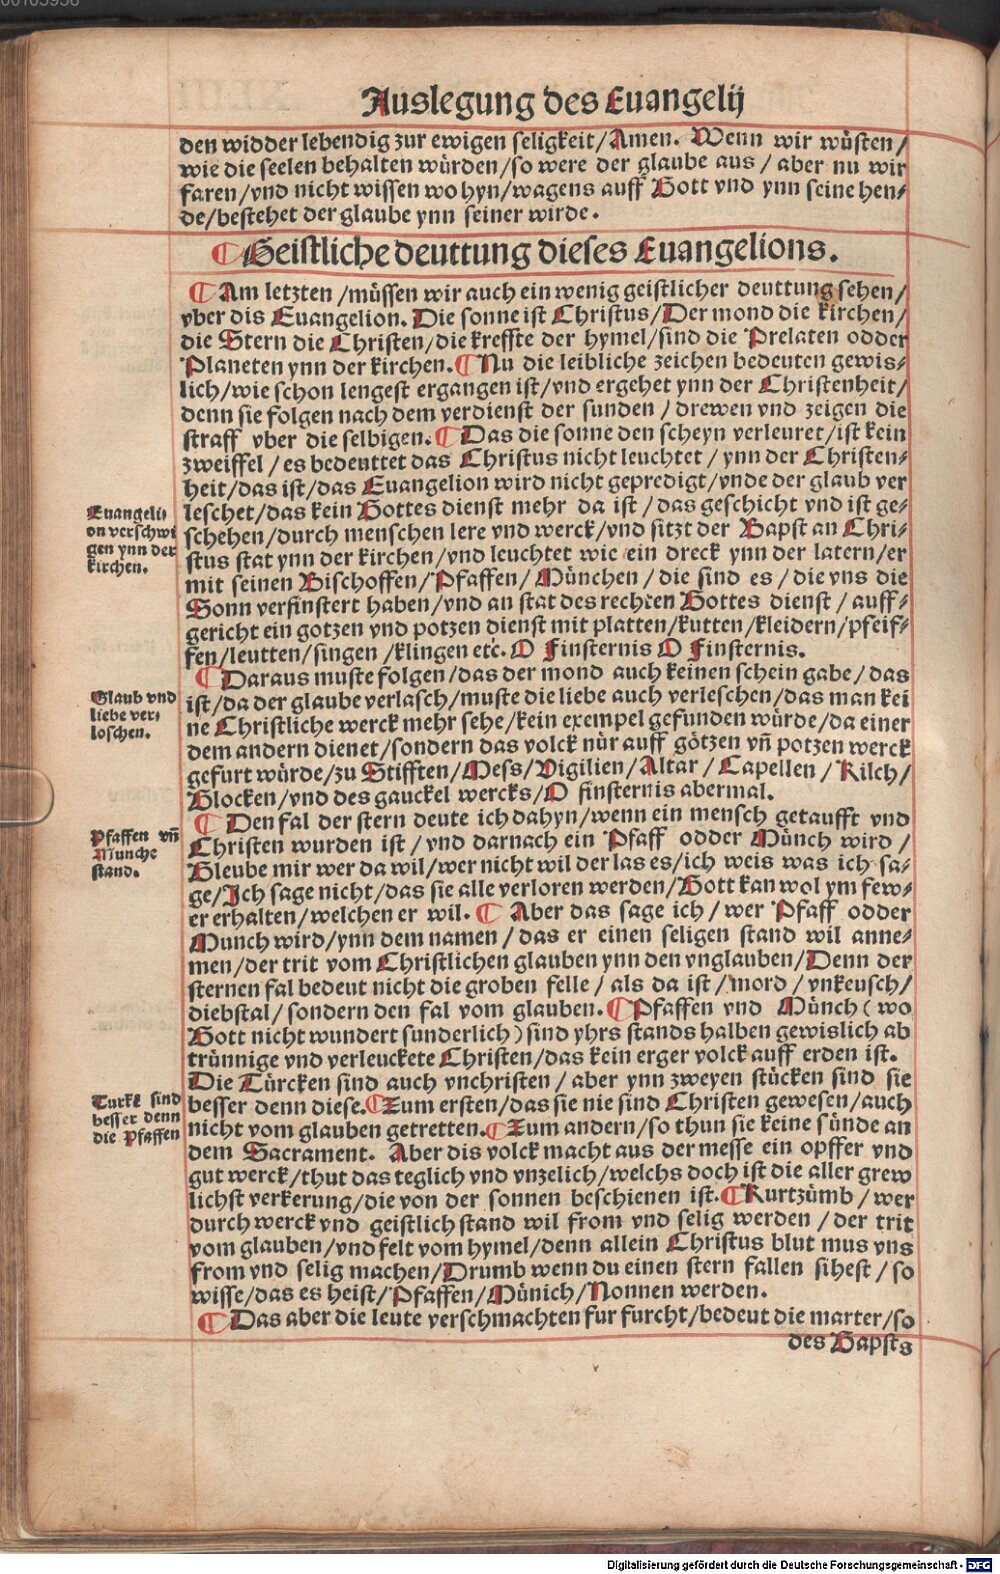 00103936
Auslegung des Euangelij
den widder lebendig zur ewigen seligkeit/Amen. Wenn wir wüsten/
wie die seelen behalten würden/so were der glaube aus/aber nu wir
faren/vnd nicht wissen wo hyn/wagens auff Gott vnd ynn seine hen⸗
de/bestehet der glaube ynn seiner wirde.
¶ Geistliche deuttung dieses Euangelions.
¶ Am letzten/müssen wir auch ein wenig geistlicher deuttung sehen/
vber dis Euangelion. Die sonne ist Christus/Der mond die kirchen/
die Stern die Christen/die kreffte der hymel/sind die Prelaten odder
Planeten ynn der kirchen. ¶ Nu die leibliche zeichen bedeuten gewis⸗
lich/wie schon lengest ergangen ist/vnd ergehet ynn der Christenheit/
denn sie folgen nach dem verdienst der sunden/drewen vnd zeigen die
straff vber die selbigen. ¶ Das die sonne den scheyn verleuret/ist kein
zweiffel/es bedeuttet das Christus nicht leuchtet/ynn der Christen⸗
heit/das ist/das Euangelion wird nicht gepredigt/vnde der glaub ver
leschet/das kein Gottes dienst mehr da ist/das geschicht vnd ist ge⸗
schehen/durch menschen lere vnd werck/vnd sitzt der Bapst an Chri⸗
stus stat ynn der kirchen/vnd leuchtet wie ein dreck ynn der latern/er
mit seinen Bischoffen/Pfaffen/München/die sind es/die vns die
Sonn verfinstert haben/vnd an stat des rechten Gottes dienst/auff⸗
gericht ein gotzen vnd potzen dienst mit platten/kutten/kleidern/pfeif⸗
fen/leutten/singen/klingen etc. O Finsternis O Finsternis.
Euangeli⸗
on verschwi
gen ynn der
kirchen.
¶ Daraus muste folgen/das der mond auch keinen schein gabe/das
ist/da der glaube verlasch/muste die liebe auch verleschen/das man kei
ne Christliche werck mehr sehe/kein exempel gefunden würde/da einer
dem andern dienet/sondern das volck nür auff götzen vn̄ potzen werck
gefurt würde/zu Stifften/Mess/Vigilien/Altar/Capellen/Kilch/
Glocken/vnd des gauckel wercks/O finsternis abermal.
Glaub vnd
liebe ver⸗
loschen.
¶ Den fal der stern deute ich dahyn/wenn ein mensch getaufft vnd
Christen wurden ist/vnd darnach ein Pfaff odder Münch wird/
Gleube mir wer da wil/wer nicht wil der las es/ich weis was ich sa⸗
ge/Ich sage nicht/das sie alle verloren werden/Gott kan wol ym few⸗
er erhalten/welchen er wil. ¶ Aber das sage ich/wer Pfaff odder
Munch wird/ynn dem namen/das er einen seligen stand wil anne⸗
men/der trit vom Christlichen glauben ynn den vnglauben/Denn der
sternen fal bedeut nicht die groben felle/als da ist/mord/vnkeusch/
diebstal/sondern den fal vom glauben. ¶ Pfaffen vnd Münch (wo
Gott nicht wundert sunderlich) sind yhrs stands halben gewislich ab
trünnige vnd verleuckete Christen/das kein erger volck auff erden ist.
Pfaffen vn̄
Munche
stand.
Die Türcken sind auch vnchristen/aber ynn zweyen stücken sind sie
besser denn diese. ¶ Zum ersten/das sie nie sind Christen gewesen/auch
nicht vom glauben getretten. ¶ Zum andern/so thun sie keine sünde an
dem Sacrament. Aber dis volck macht aus der messe ein opffer vnd
gut werck/thut das teglich vnd vnzelich/welchs doch ist die aller grew
lichst verkerung/die von der sonnen beschienen ist. ¶ Kurtzümb/wer
durch werck vnd geistlich stand wil from vnd selig werden/der trit
vom glauben/vnd felt vom hymel/denn allein Christus blut mus vns
from vnd selig machen/Drumb wenn du einen stern fallen sihest/so
wisse/das es heist/Pfaffen/Münich/Nonnen werden.
Turke sind
besser denn
die Pfaffen
¶ Das aber die leute verschmachten fur furcht/bedeut die marter/so
des Bapsts
Digitalisierung gefördert durch die Deutsche Forschungsgemeinschaft - DFG